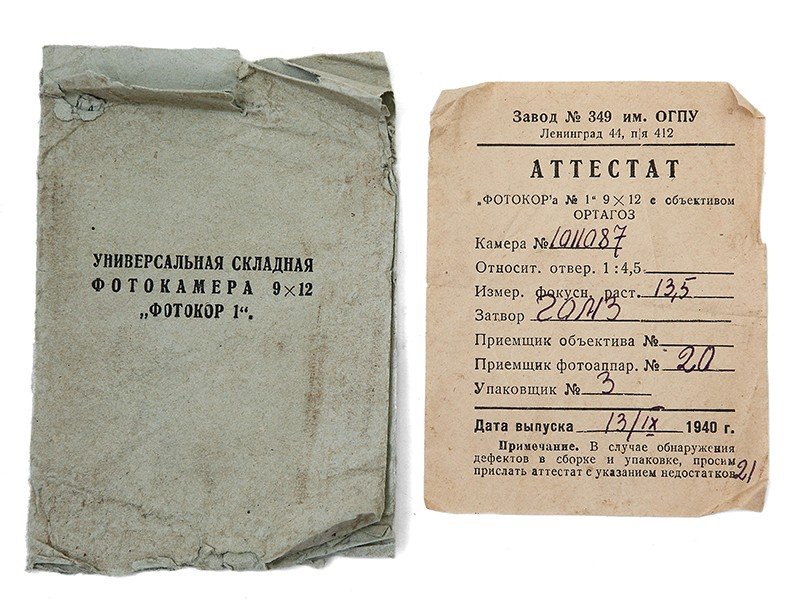 УНИВЕРСАЛЬНАЯ СКЛАДНАЯ
ФОТОКАМЕРА 9×12
„ФОТОКОР 1“.
Завод № 349 им. ОГПУ
Ленинград 44, п|я 412
АТТЕСТАТ
„ФОТОКОР'а № 1“ 9×12 с объективом
ОРТАГОЗ
Камера № 1011087
Относит. отвер. 1:4,5.
Измер. фокусн. раст. 13,5
Затвор ГОМЗ
Приемщик объектива №
Приемщик фотоаппар. № 20
Упаковщик № 3
Дата выпуска 13/IX 1940 г.
Примечание. В случае обнаружения
дефектов в сборке и упаковке, просим
прислать аттестат с указанием недостатков.
21